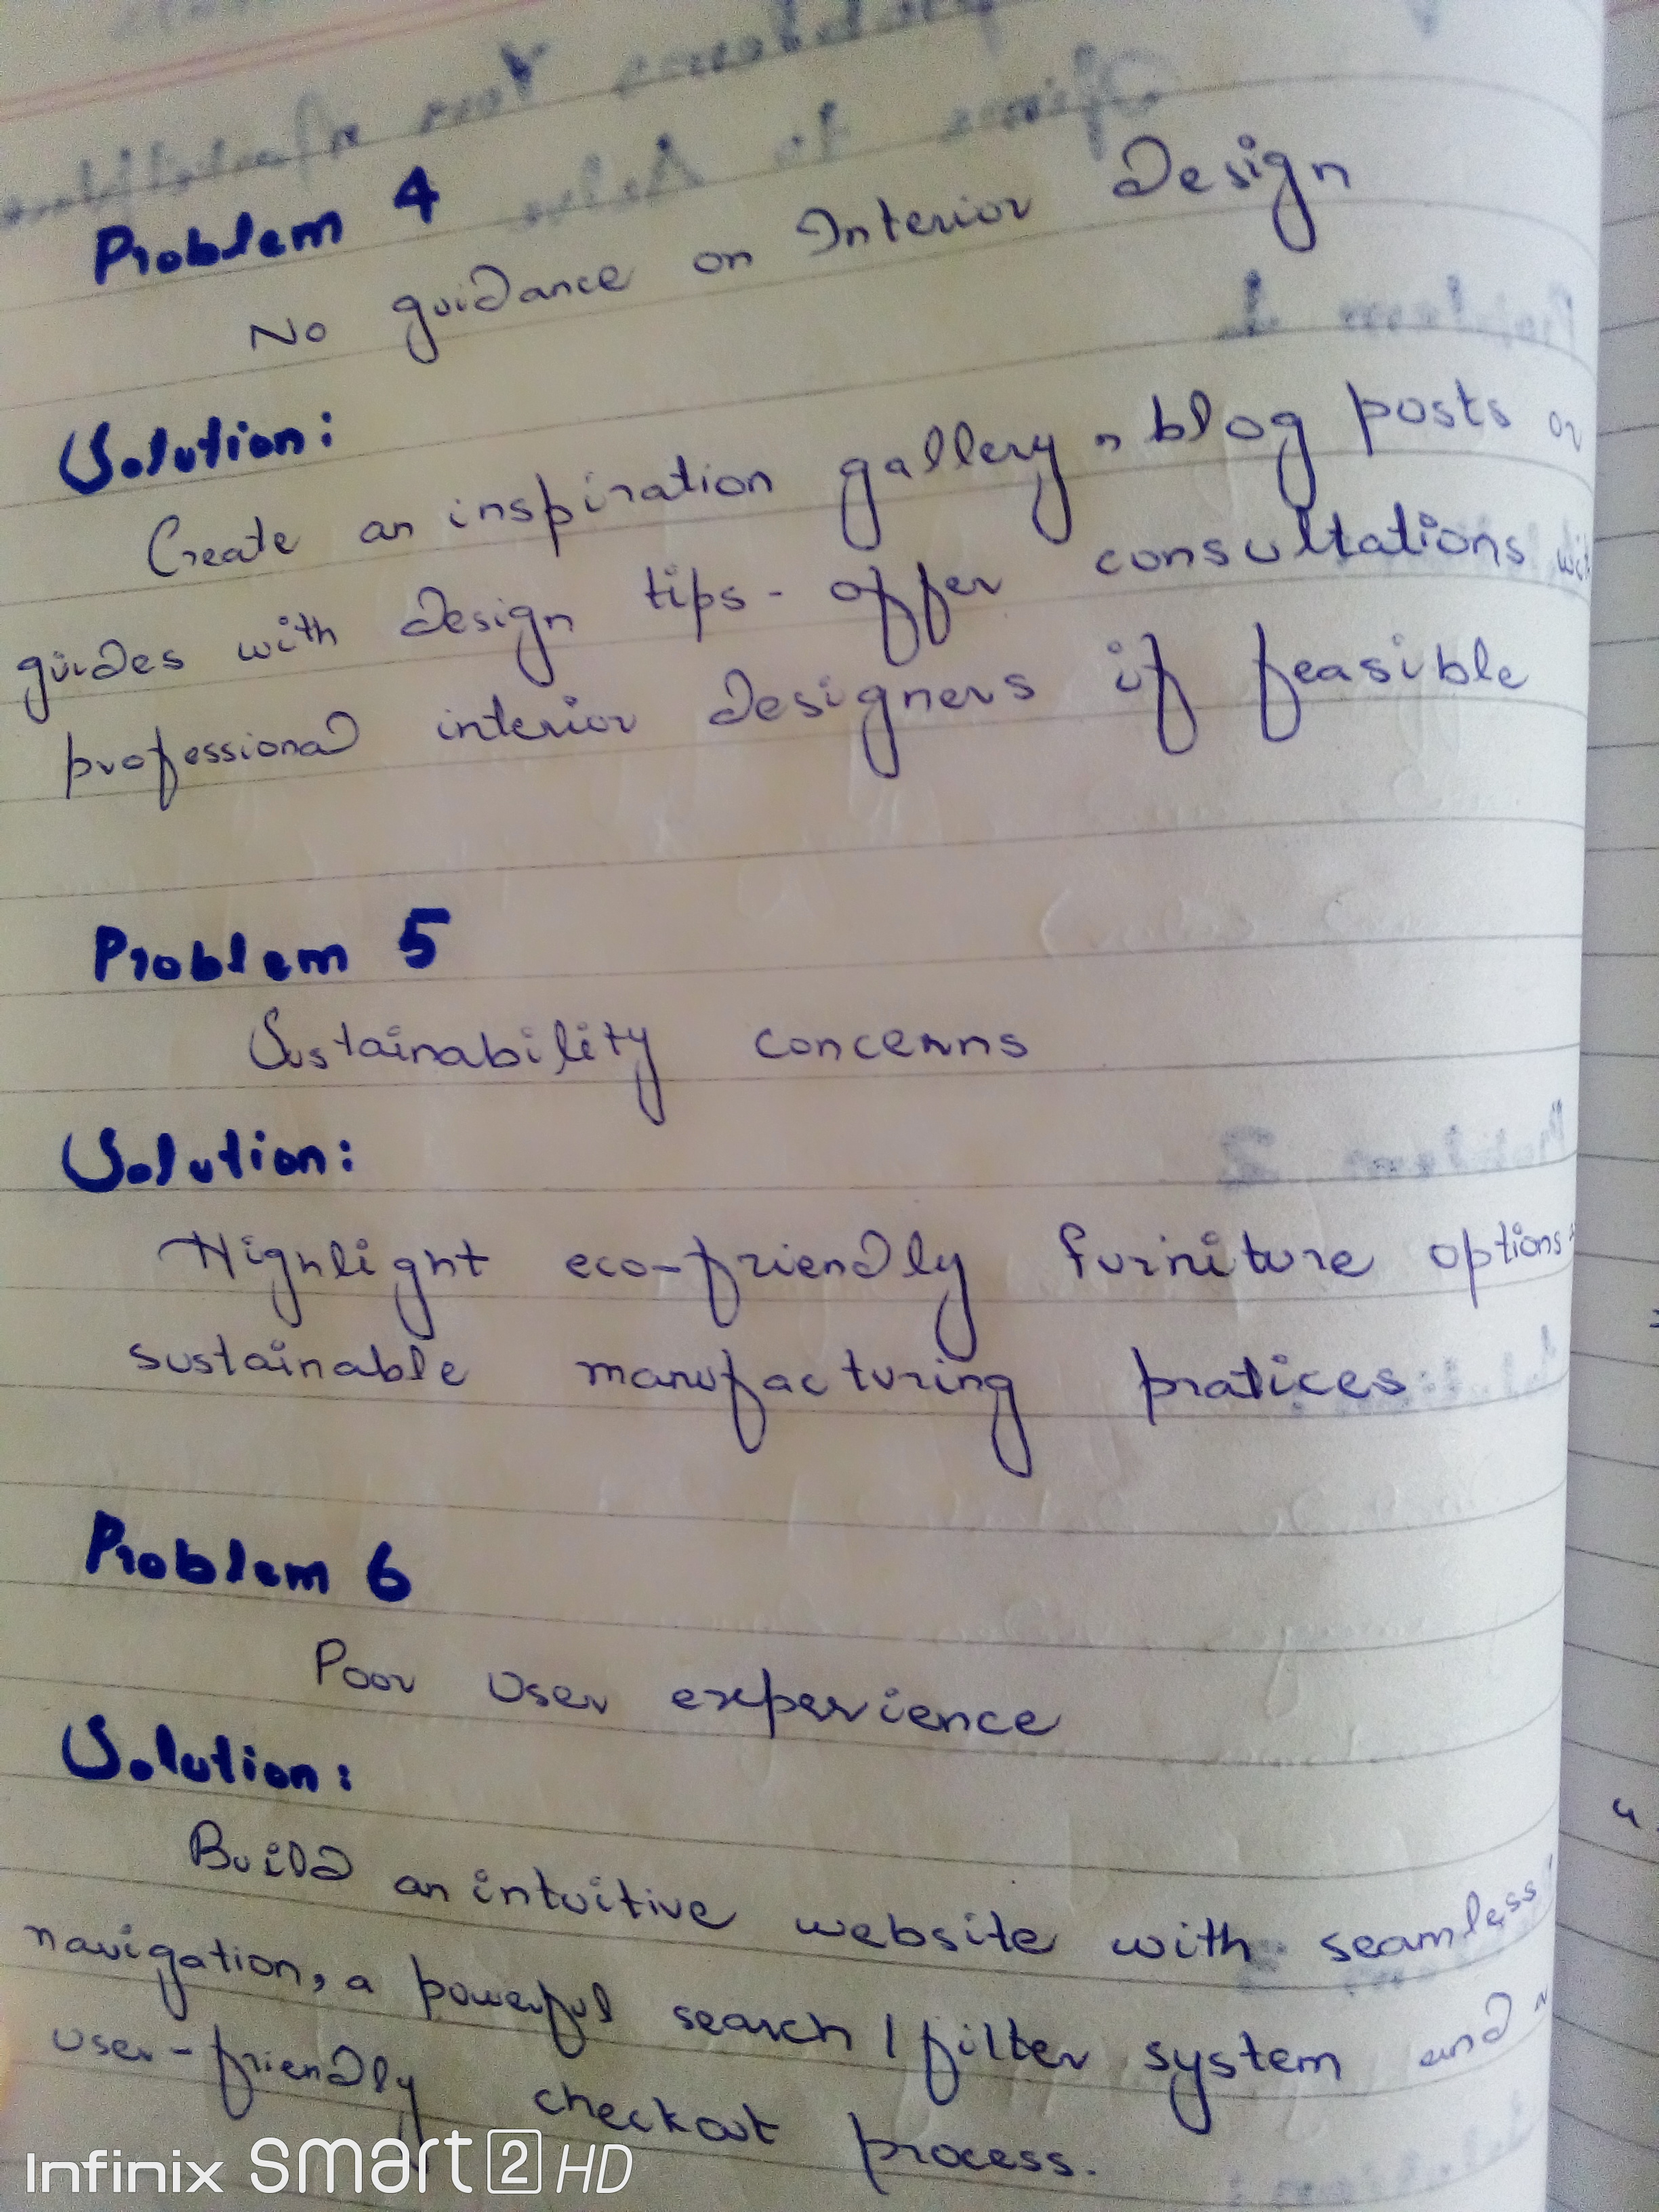 Problem 4
No guidance on Interior Design
Solution:
Create an inspiration gallery, blog posts or
guides with design tips. offer consultations with
professional interior designers if feasible
Problem 5
Sustainability concerns
Solution:
Highlight eco-friendly furniture options
sustainable manufacturing pratices
Problem 6
Poor user experience
Solution:
Build an intuitive website with seamless
navigation, a powerful search / filter system and a
user-friendly checkout process.
Infinix smart 2 HD